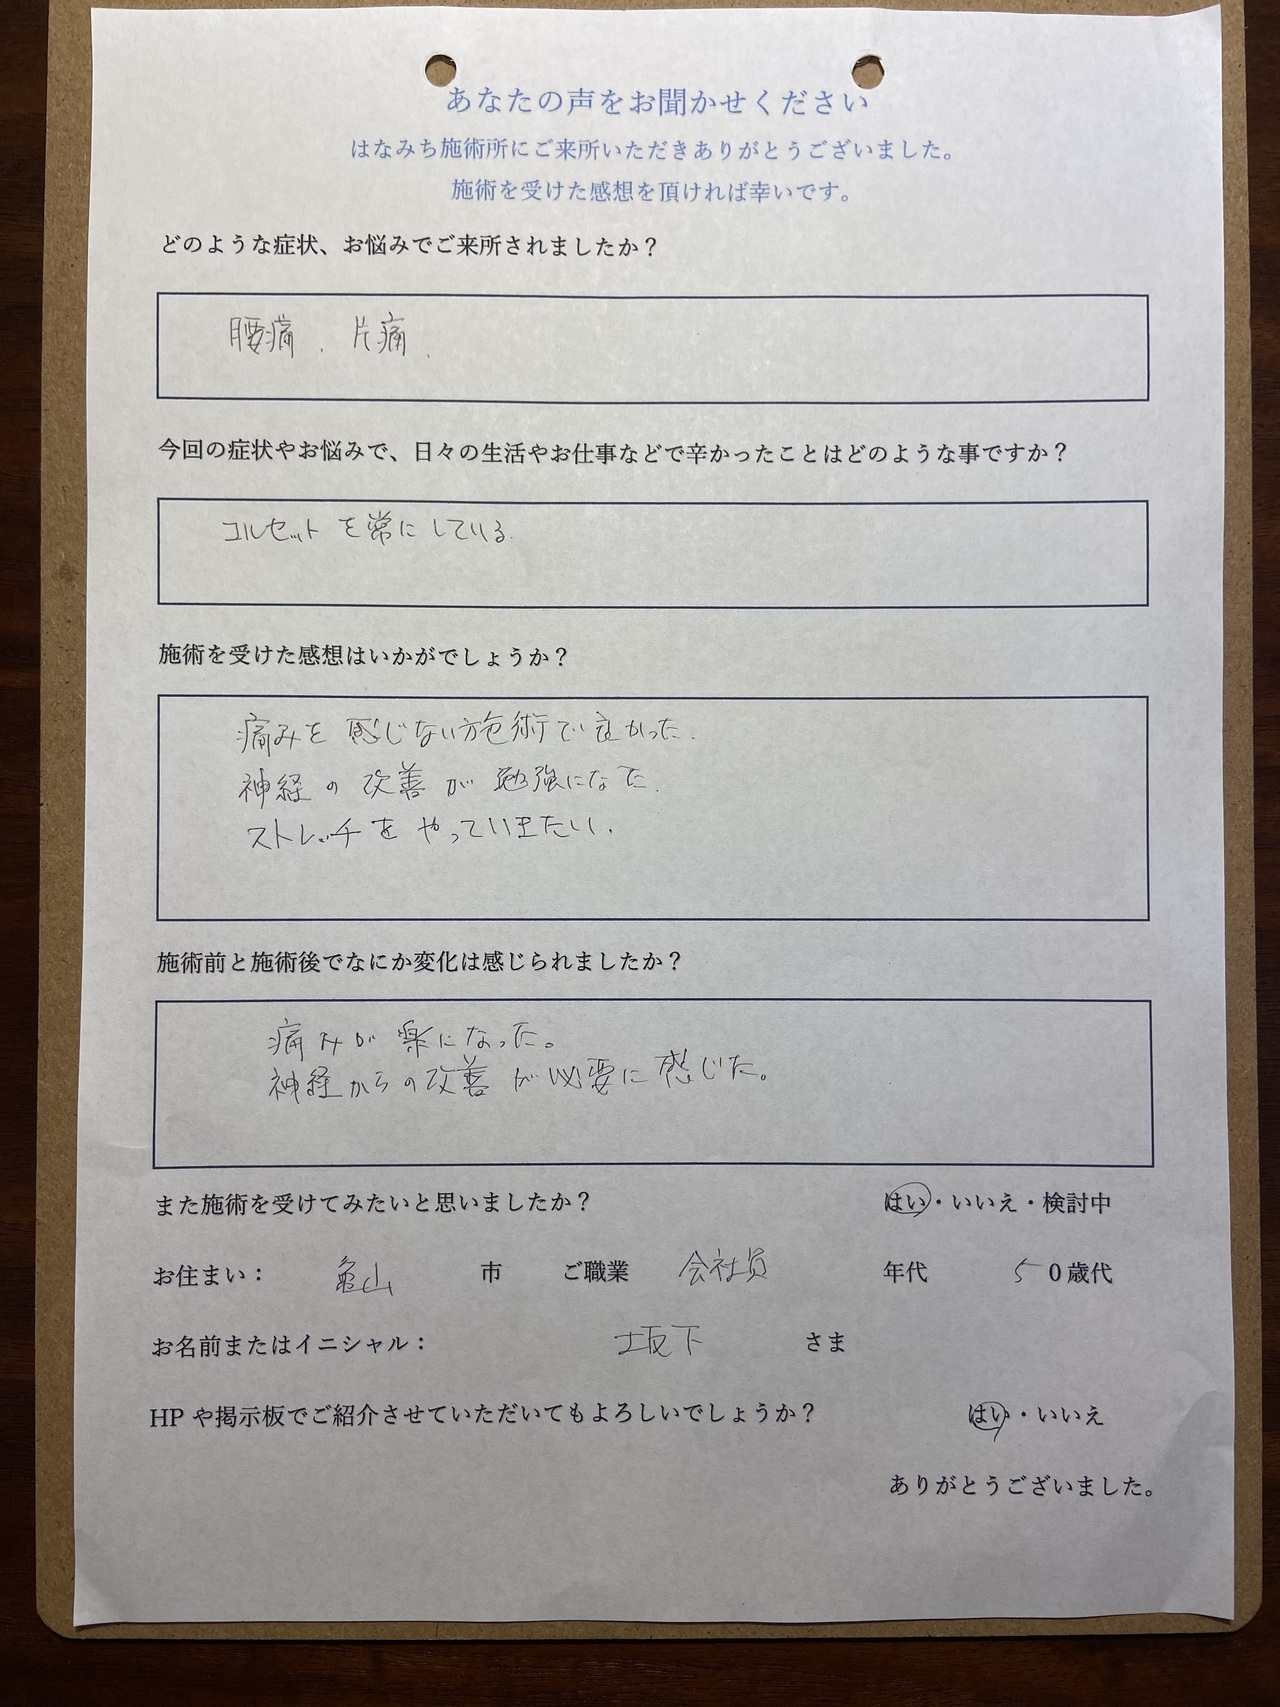 あなたの声をお聞かせください
はなみち施術所にご来所いただきありがとうございました。
施術を受けた感想を頂ければ幸いです。
どのような症状、お悩みでご来所されましたか？
腰痛、片痛、
今回の症状やお悩みで、日々の生活やお仕事などで辛かったことはどのような事ですか？
コルセットを常にしている.
施術を受けた感想はいかがでしょうか？
痛みを感じない施術で良かった.
神経の改善が勉強になた.
ストレッチをやっていきたい.
施術前と施術後でなにか変化は感じられましたか？
痛みが楽になった。
神経からの改善が必要に感じた。
また施術を受けてみたいと思いましたか？ はい・いいえ・検討中
お住まい： 亀山 市 ご職業 会社員 年代 50歳代
お名前またはイニシャル： 坂下 さま
HPや掲示板でご紹介させていただいてもよろしいでしょうか？ はい・いいえ
ありがとうございました。